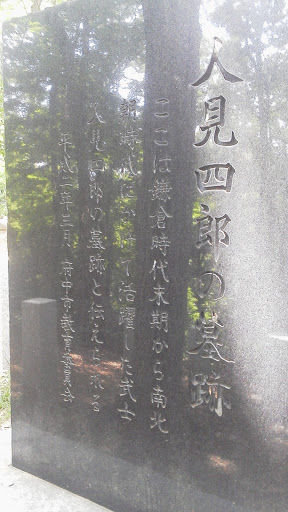 人見四郎の墓跡
ここは鎌倉時代末期から南北
朝時代にかけて活躍した武士
人見四郎の墓跡と伝えられる
平成二年三月 府中市教育委員会